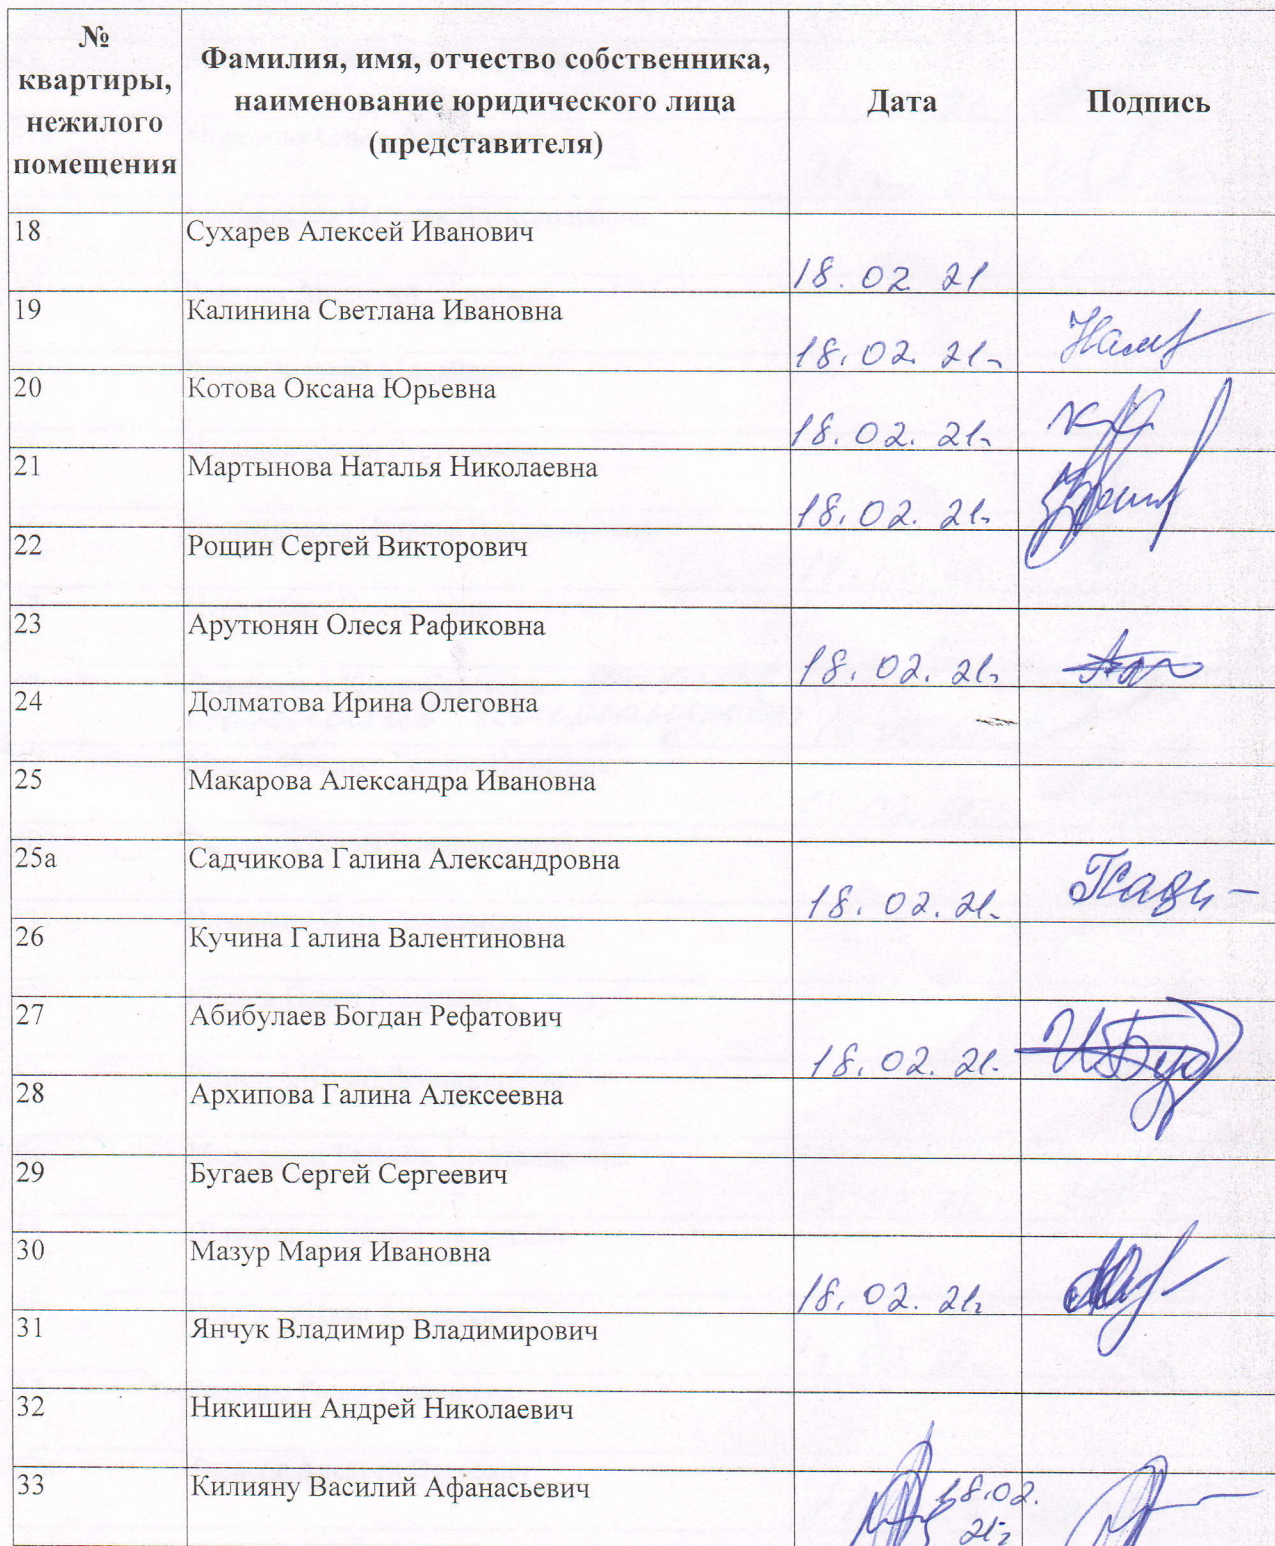 №
квартиры,
нежилого
помещения
Фамилия, имя, отчество собственника,
наименование юридического лица
(представителя)
Дата
Подпись
18 Сухарев Алексей Иванович
18.02 21
19 Калинина Светлана Ивановна
18.02.21г
20 Котова Оксана Юрьевна
18.02.21г
21 Мартынова Наталья Николаевна
18.02.21г
22 Рощин Сергей Викторович
23 Арутюнян Олеся Рафиковна
18.02.21г
24 Долматова Ирина Олеговна
25 Макарова Александра Ивановна
25а Садчикова Галина Александровна
18.02.21г
26 Кучина Галина Валентиновна
27 Абибулаев Богдан Рефатович
18.02.21г
28 Архипова Галина Алексеевна
29 Бугаев Сергей Сергеевич
30 Мазур Мария Ивановна
18.02.21г
31 Янчук Владимир Владимирович
32 Никишин Андрей Николаевич
33 Килияну Василий Афанасьевич
18.02.
21г